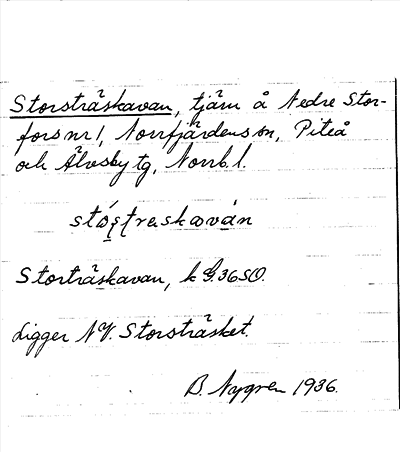 Storsträskavan, tjärn å Nedre Stor-
fors nr 1, Norrfjärdens sn, Piteå
och Älvsby tg, Norrb. l.
stó̤ştrɐskɑván
Storträskavan, k G. 36 SO.
Ligger NV. Storsträsket.
B. Nygren 1936.